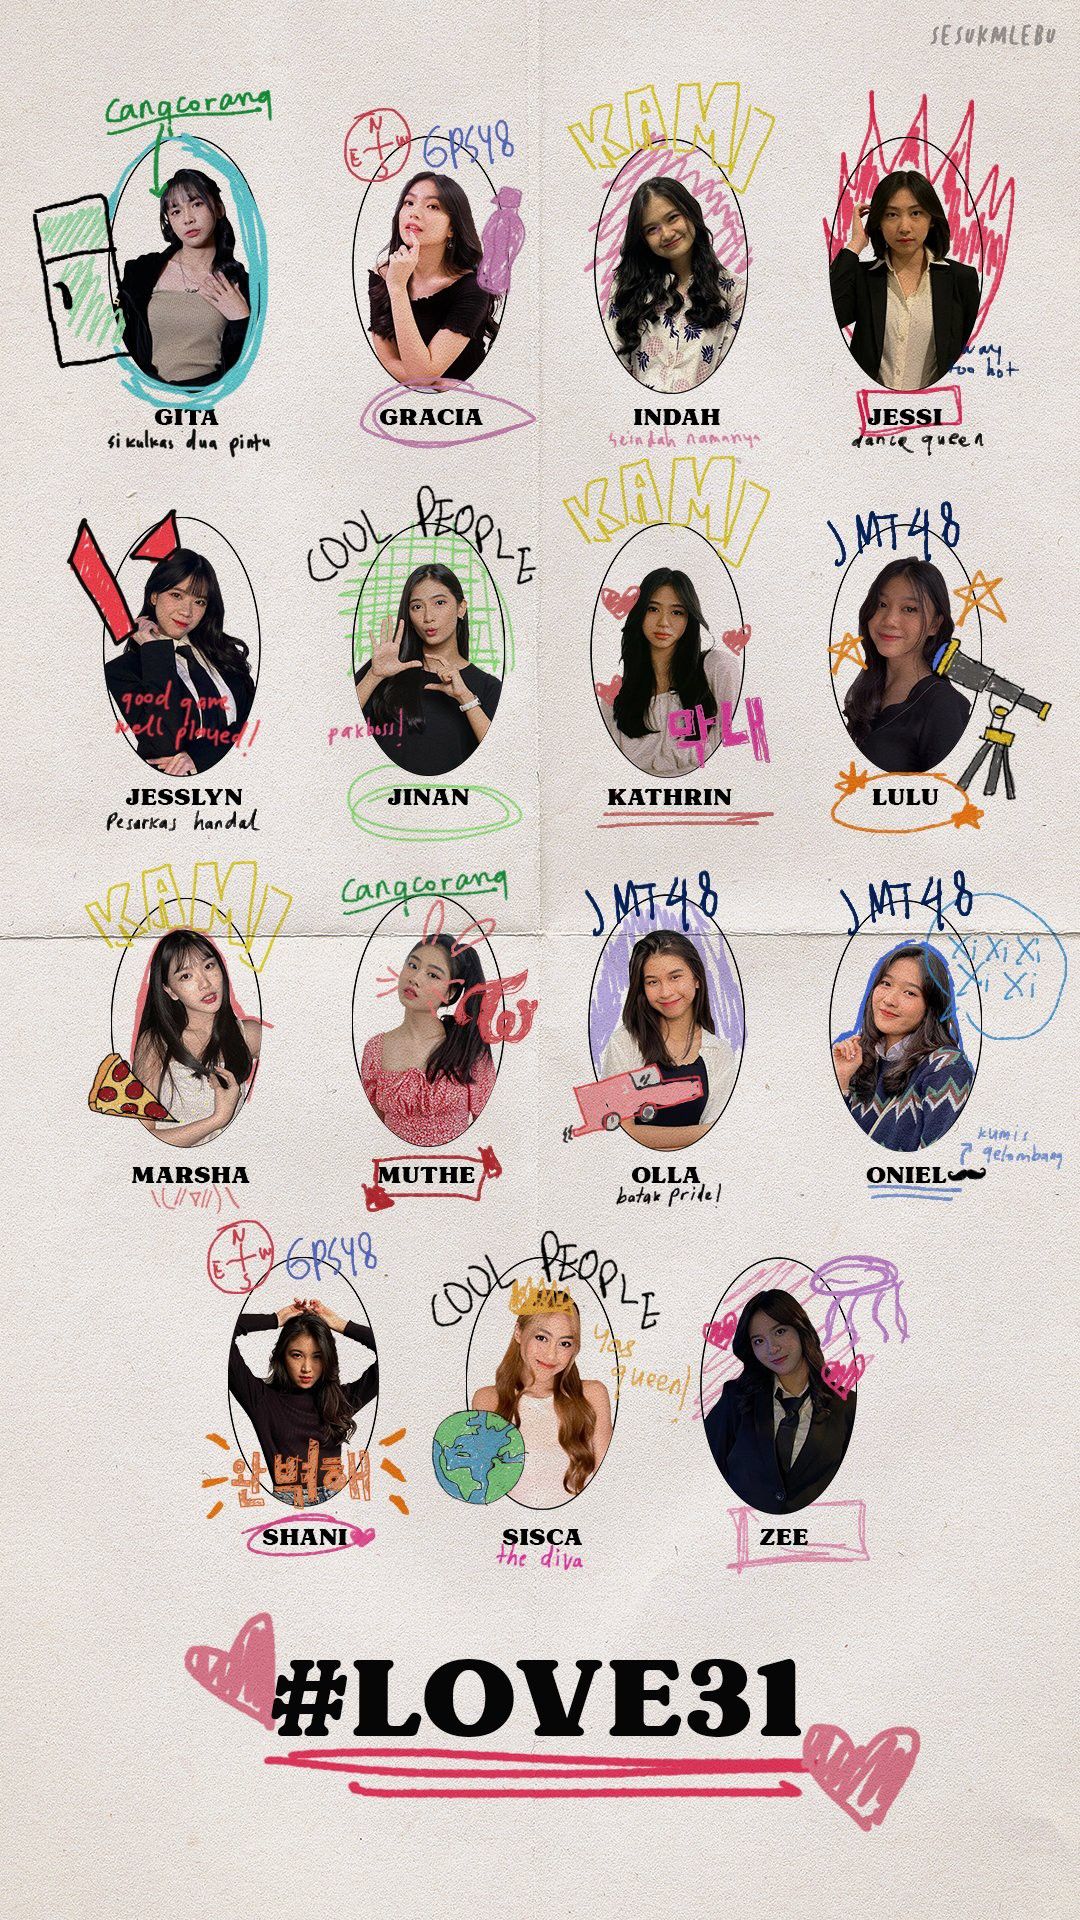 SESUKMLEBU
Cangcorang
N
E W
S
GPSY8
KAMI
GITA
si kulkas dua pintu
GRACIA
INDAH
seindah namanya
way
too hot
JESSI
dance queen
good game
well played!!
JESSLYN
Pesarkas handal
COOL PEOPLE
pakboss!
JINAN
KAMI
막내
KATHRIN
JMT48
LULU
KAMI
MARSHA
Cangcorang
MUTHE
JMT48
OLLA
batak pride!
JMT48
Xi Xi Xi
Xi Xi
kumis
gelombang
ONIEL
N
E W
S
GPSY8
완벽해
SHANI
COOL PEOPLE
Yas
queen!
SISCA
the diva
ZEE
#LOVE31